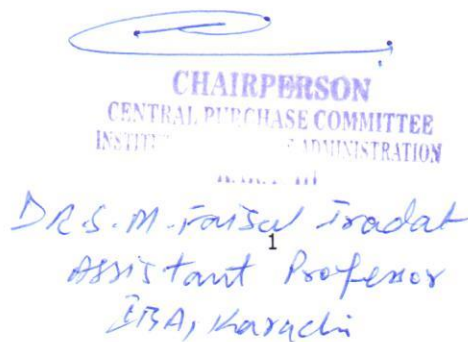 CHAIRPERSON
CENTRAL PURCHASE COMMITTEE
ADMINISTRATION
DR. S. M. Faisal Iradat
1
Assistant Professor
IBA, Karachi